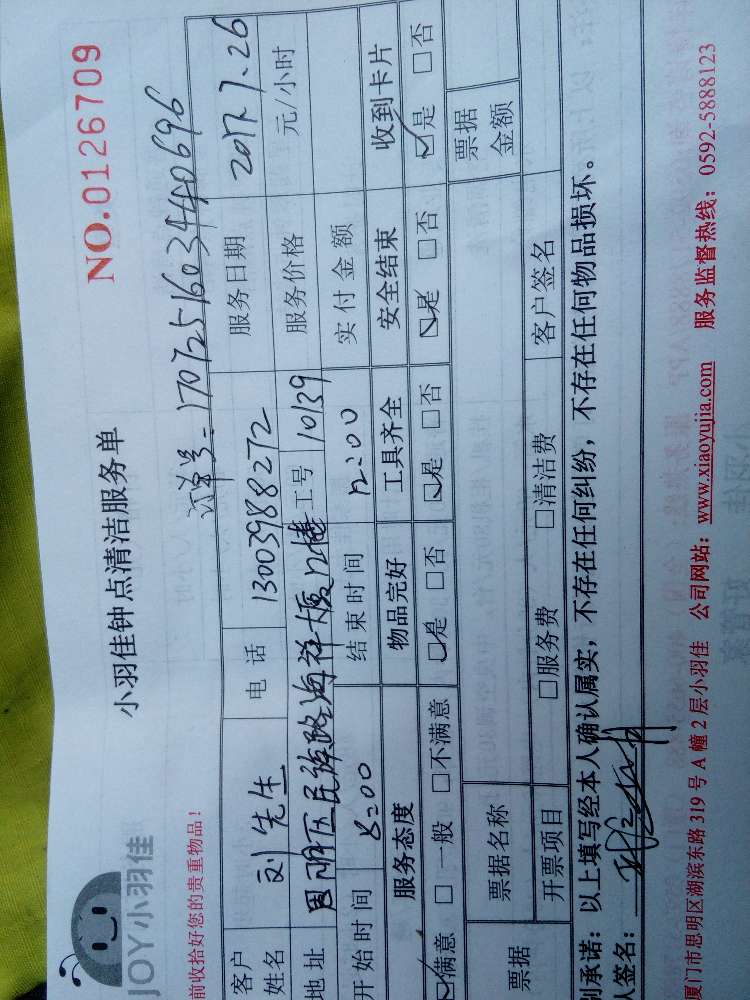 JOY小羽佳
小羽佳钟点清洁服务单
NO.0126709
前收拾好您的贵重物品！
订单号：17072516034440696
客户姓名 刘先生 电话 13003988272 服务日期 2017.7.26
地址 思明区民族路海祥大厦12楼 工号 10139 服务价格 元/小时
开始时间 8:00 结束时间 12:00 实付金额
服务态度 物品完好 工具齐全 安全结束 收到卡片
☑满意 □一般 □不满意 ☑是 □否 ☑是 □否 ☑是 □否 ☑是 □否
票据 票据名称 票据金额
开票项目 □服务费 □清洁费 客户签名
别承诺：以上填写经本人确认属实，不存在任何纠纷，不存在任何物品损坏。
人签名：
厦门市思明区湖滨东路 319 号 A 幢 2 层小羽佳 公司网站：www.xiaoyujia.com 服务监督热线：0592-5888123